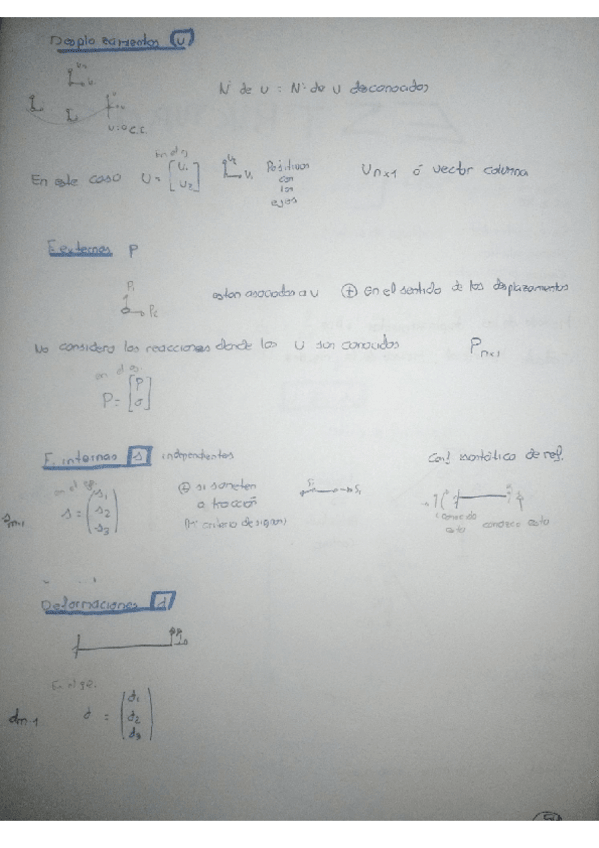 Desplazamientos U
Nº de U = Nº de U desconocidos
U=0 C.C.
En este caso U = [U1 U2] U2 U1 Positivos con los ejes Un×1 ó vector columna
F. externas P
P1
P2
estan asociados a U ⊕ en el sentido de los desplazamientos
No considero las reacciones donde los U son conocidos Pn×1
en el ej.
P = [P 0]
F. internas s independientes
en el ej.
sm·1 s = (s1 s2 s3)
⊕ si someten a tracción
(1er criterio de signos)
S1 S1
conociendo esto conozco esto
Deformaciones d
En el ej.
dm·1 d = (d1 d2 d3)